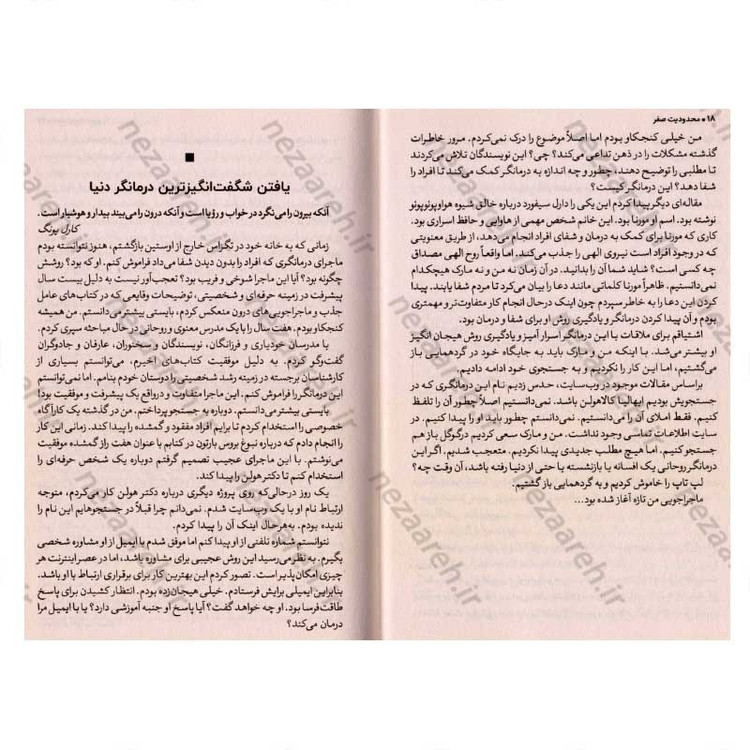 ۱۸ • محدودیت صفر
من خیلی کنجکاو بودم اما اصلاً موضوع را درک نمی‌کردم. مرور خاطرات
گذشته مشکلات را در ذهن تداعی می‌کند؟ چی؟ این نویسندگان تلاش می‌کردند
تا مطلبی را توضیح دهند، چطور و چه اندازه به درمانگر کمک می‌کند تا افراد را
شفا دهد؟ این درمانگر کیست؟
مقاله‌ای دیگر پیدا کردم این یکی را داریل سیفورد درباره خالق شیوه هواوپونوپونو
نوشته بود. اسم او مورنا بود. این خانم شخص مهمی از هاوایی و حافظ اسراری بود.
کاری که مورنا برای کمک به درمان و شفای افراد انجام می‌دهد، از طریق معنویتی
که در وجود افراد است نیروی الهی را جذب می‌کند. اما واقعاً روح الهی مصداق
چه کسی است؟ شاید شما آن را بدانید. در آن زمان نه من و نه مارک هیچکدام
نمی‌دانستیم. ظاهراً مورنا کلماتی مانند دعا را بیان می‌کرد تا مردم شفا یابند. پیدا
کردن این دعا را به خاطر سپردم چون اینک درحال انجام کار متفاوت‌تر و مهمتری
بودم و آن پیدا کردن درمانگر و یادگیری روش او برای شفا و درمان بود.
اشتیاقم برای ملاقات با این درمانگر اسرار آمیز و یادگیری روش هیجان انگیز
او بیشتر می‌شد. با اینکه من و مارک باید به جایگاه خود در گردهمایی باز
می‌گشتیم، اما این کار را نکردیم و به جستجوی خود ادامه دادیم.
براساس مقالات موجود در وب‌سایت، حدس زدیم نام این درمانگری که در
جستجویش بودیم ایهالیا کالاهولن باشد. نمی‌دانستیم اصلاً چطور آن را تلفظ
کنیم. فقط املای آن را می‌دانستیم. نمی‌دانستم چطور باید او را پیدا کنیم. در
سایت اطلاعات تماسی وجود نداشت. من و مارک سعی کردیم در گوگل باز هم
جستجو کنیم. اما هیچ مطلب جدیدی پیدا نکردیم. متعجب شدیم. اگر این
درمانگر روحانی یک افسانه یا بازنشسته یا حتی از دنیا رفته باشد، آن وقت چه؟
لپ تاپ را خاموش کردیم و به گردهمایی باز گشتیم.
ماجراجویی من تازه آغاز شده بود...
یافتن شگفت‌انگیزترین درمانگر دنیا
آنکه بیرون را می‌نگرد در خواب و رؤیا است و آنکه درون را می‌بیند بیدار و هوشیار است.
کارل یونگ
زمانی که به خانه خود در تگزاس خارج از اوستین بازگشتم، هنوز نتوانسته بودم
ماجرای درمانگری که افراد را بدون دیدن شفا می‌داد فراموش کنم. او که بود؟ روشش
چگونه بود؟ آیا این ماجرا شوخی و فریب بود؟ تعجب‌آور نیست به دلیل بیست سال
پیشرفت در زمینه حرفه‌ای و شخصیتی، توضیحات وقایعی که در کتاب‌های عامل
جذب و ماجراجویی‌های درون منعکس کردم، بایستی بیشتر می‌دانستم. من همیشه
کنجکاو بودم. هفت سال را با یک مدرس معنوی و روحانی در حال مباحثه سپری کردم.
با مدرسان خودیاری و فرزانگان، نویسندگان و سخنوران، عارفان و جادوگران
گفت‌وگو کردم. به دلیل موفقیت کتاب‌های اخیرم، می‌توانستم بسیاری از
کارشناسان برجسته در زمینه رشد شخصیتی را دوستان خودم بنامم. اما نمی‌توانستم
این درمانگر را فراموش کنم. این ماجرا متفاوت و درواقع یک پیشرفت و موفقیت بود!
بایستی بیشتر می‌دانستم. دوباره به جستجو پرداختم. من در گذشته یک کارآگاه
خصوصی را استخدام کردم تا برایم افراد مفقود و گمشده را پیدا کند. زمانی این کار
را انجام دادم که درباره نبوغ بروس بارتون در کتابم با عنوان هفت راز گمشده موفقیت
می‌نوشتم. با این ماجرای عجیب تصمیم گرفتم دوباره یک شخص حرفه‌ای را
استخدام کنم تا دکتر هولن را پیدا کند.
یک روز درحالی‌که روی پروژه دیگری درباره دکتر هولن کار می‌کردم، متوجه
ارتباط نام او با یک وب‌سایت شدم. نمی‌دانم چرا قبلاً در جستجوهایم این نام را
ندیده بودم. به‌هرحال اینک آن را پیدا کردم.
نتوانستم شماره تلفنی از او پیدا کنم اما موفق شدم با ایمیل از او مشاوره شخصی
بگیرم. به نظر می‌رسید این روش عجیبی برای مشاوره باشد، اما در عصر اینترنت هر
چیزی امکان‌پذیر است. تصور کردم این بهترین کار برای برقراری ارتباط با او باشد.
بنابراین ایمیلی برایش فرستادم. خیلی هیجان‌زده بودم. انتظار کشیدن برای پاسخ
طاقت فرسا بود. او چه خواهد گفت؟ آیا پاسخ او جنبه آموزشی دارد؟ یا با ایمیل مرا
درمان می‌کند؟
nezaareh.ir